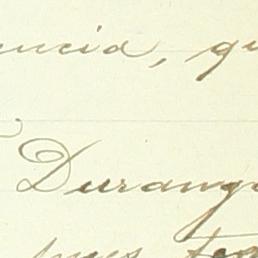 uncia, qu
Durang
pues te